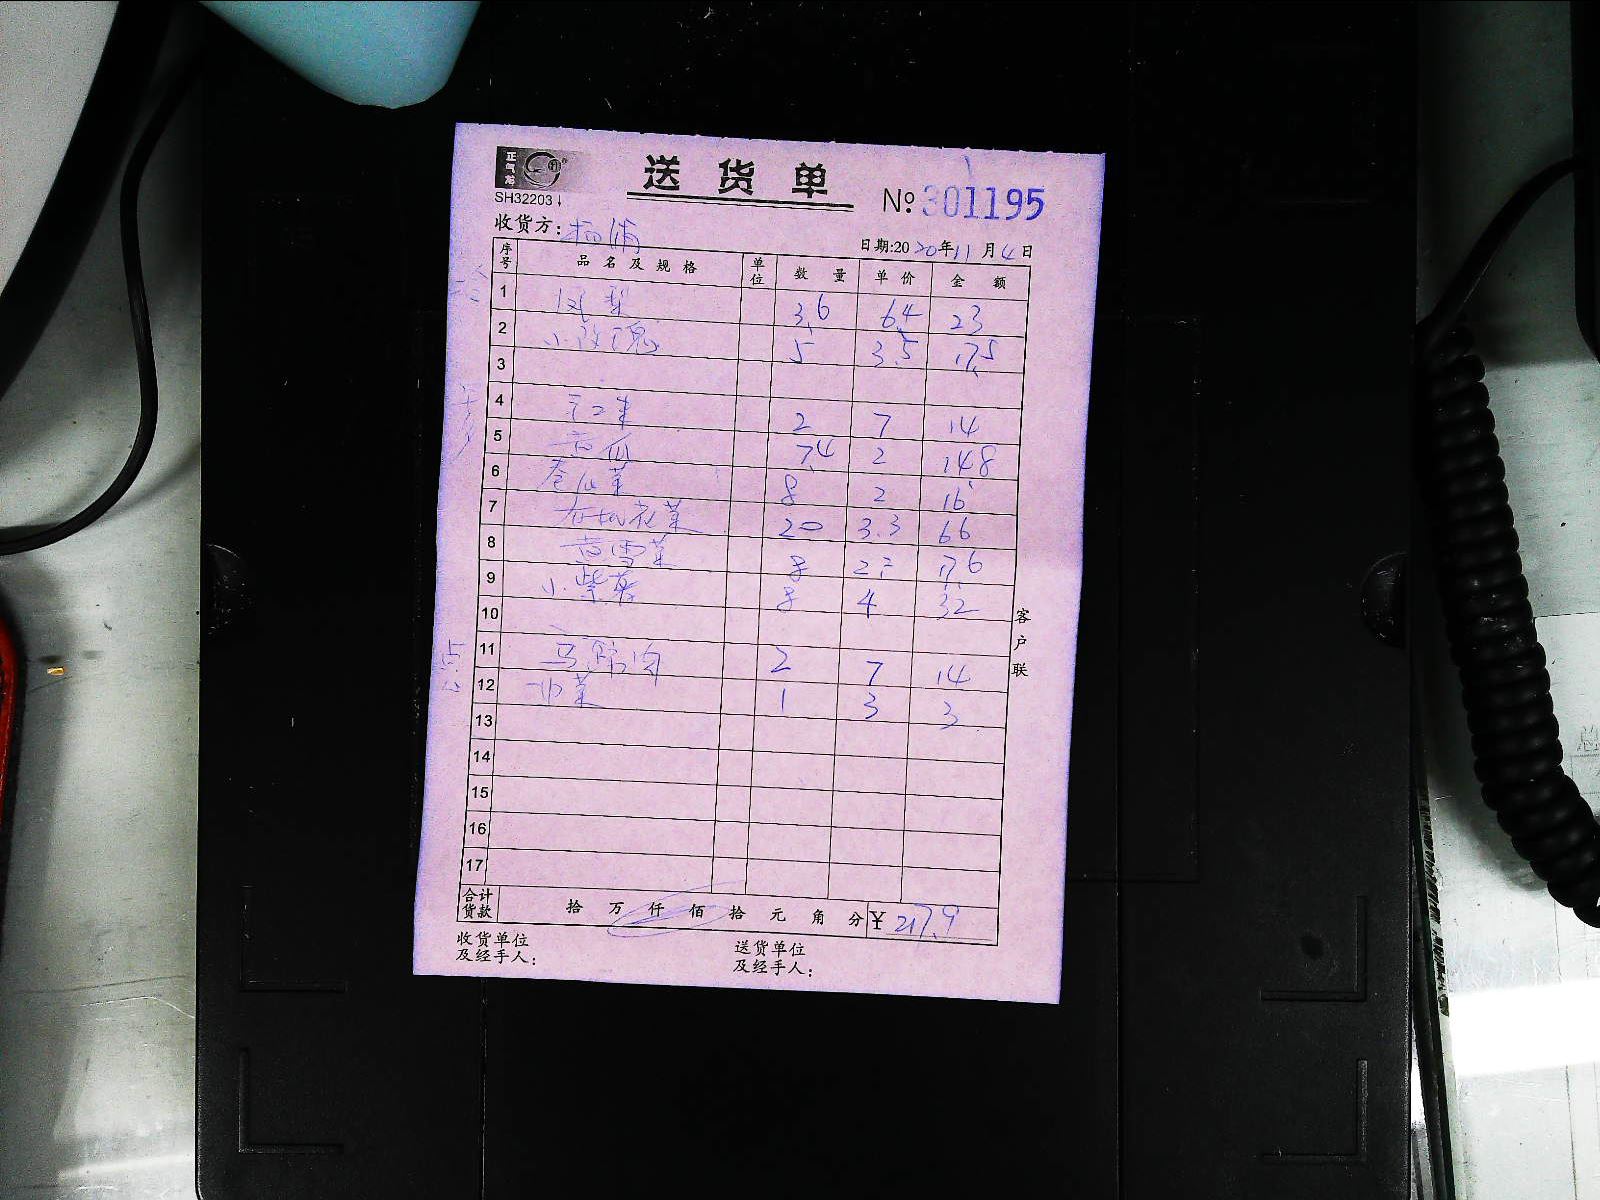 正气龙
送货单
SH32203
№301195
收货方: 杨浦
日期:2020年11月4日
序号 品名及规格 单位 数量 单价 金额
1 凤梨 3.6 6.4 23
2 小玫瑰 5 3.5 17.5
3
4 2 7 14
5 黄瓜 7.4 2 14.8
6 8 2 16
7 有机花菜 20 3.3 66
8 黄雪菜 8 2.2 17.6
9 小紫薯 8 4 32
10
11 2 7 14
12 1 3 3
13
14
15
16
17
合计货款 拾 万 仟 佰 拾 元 角 分 ¥ 217.9
收货单位及经手人:
送货单位及经手人:
客户联